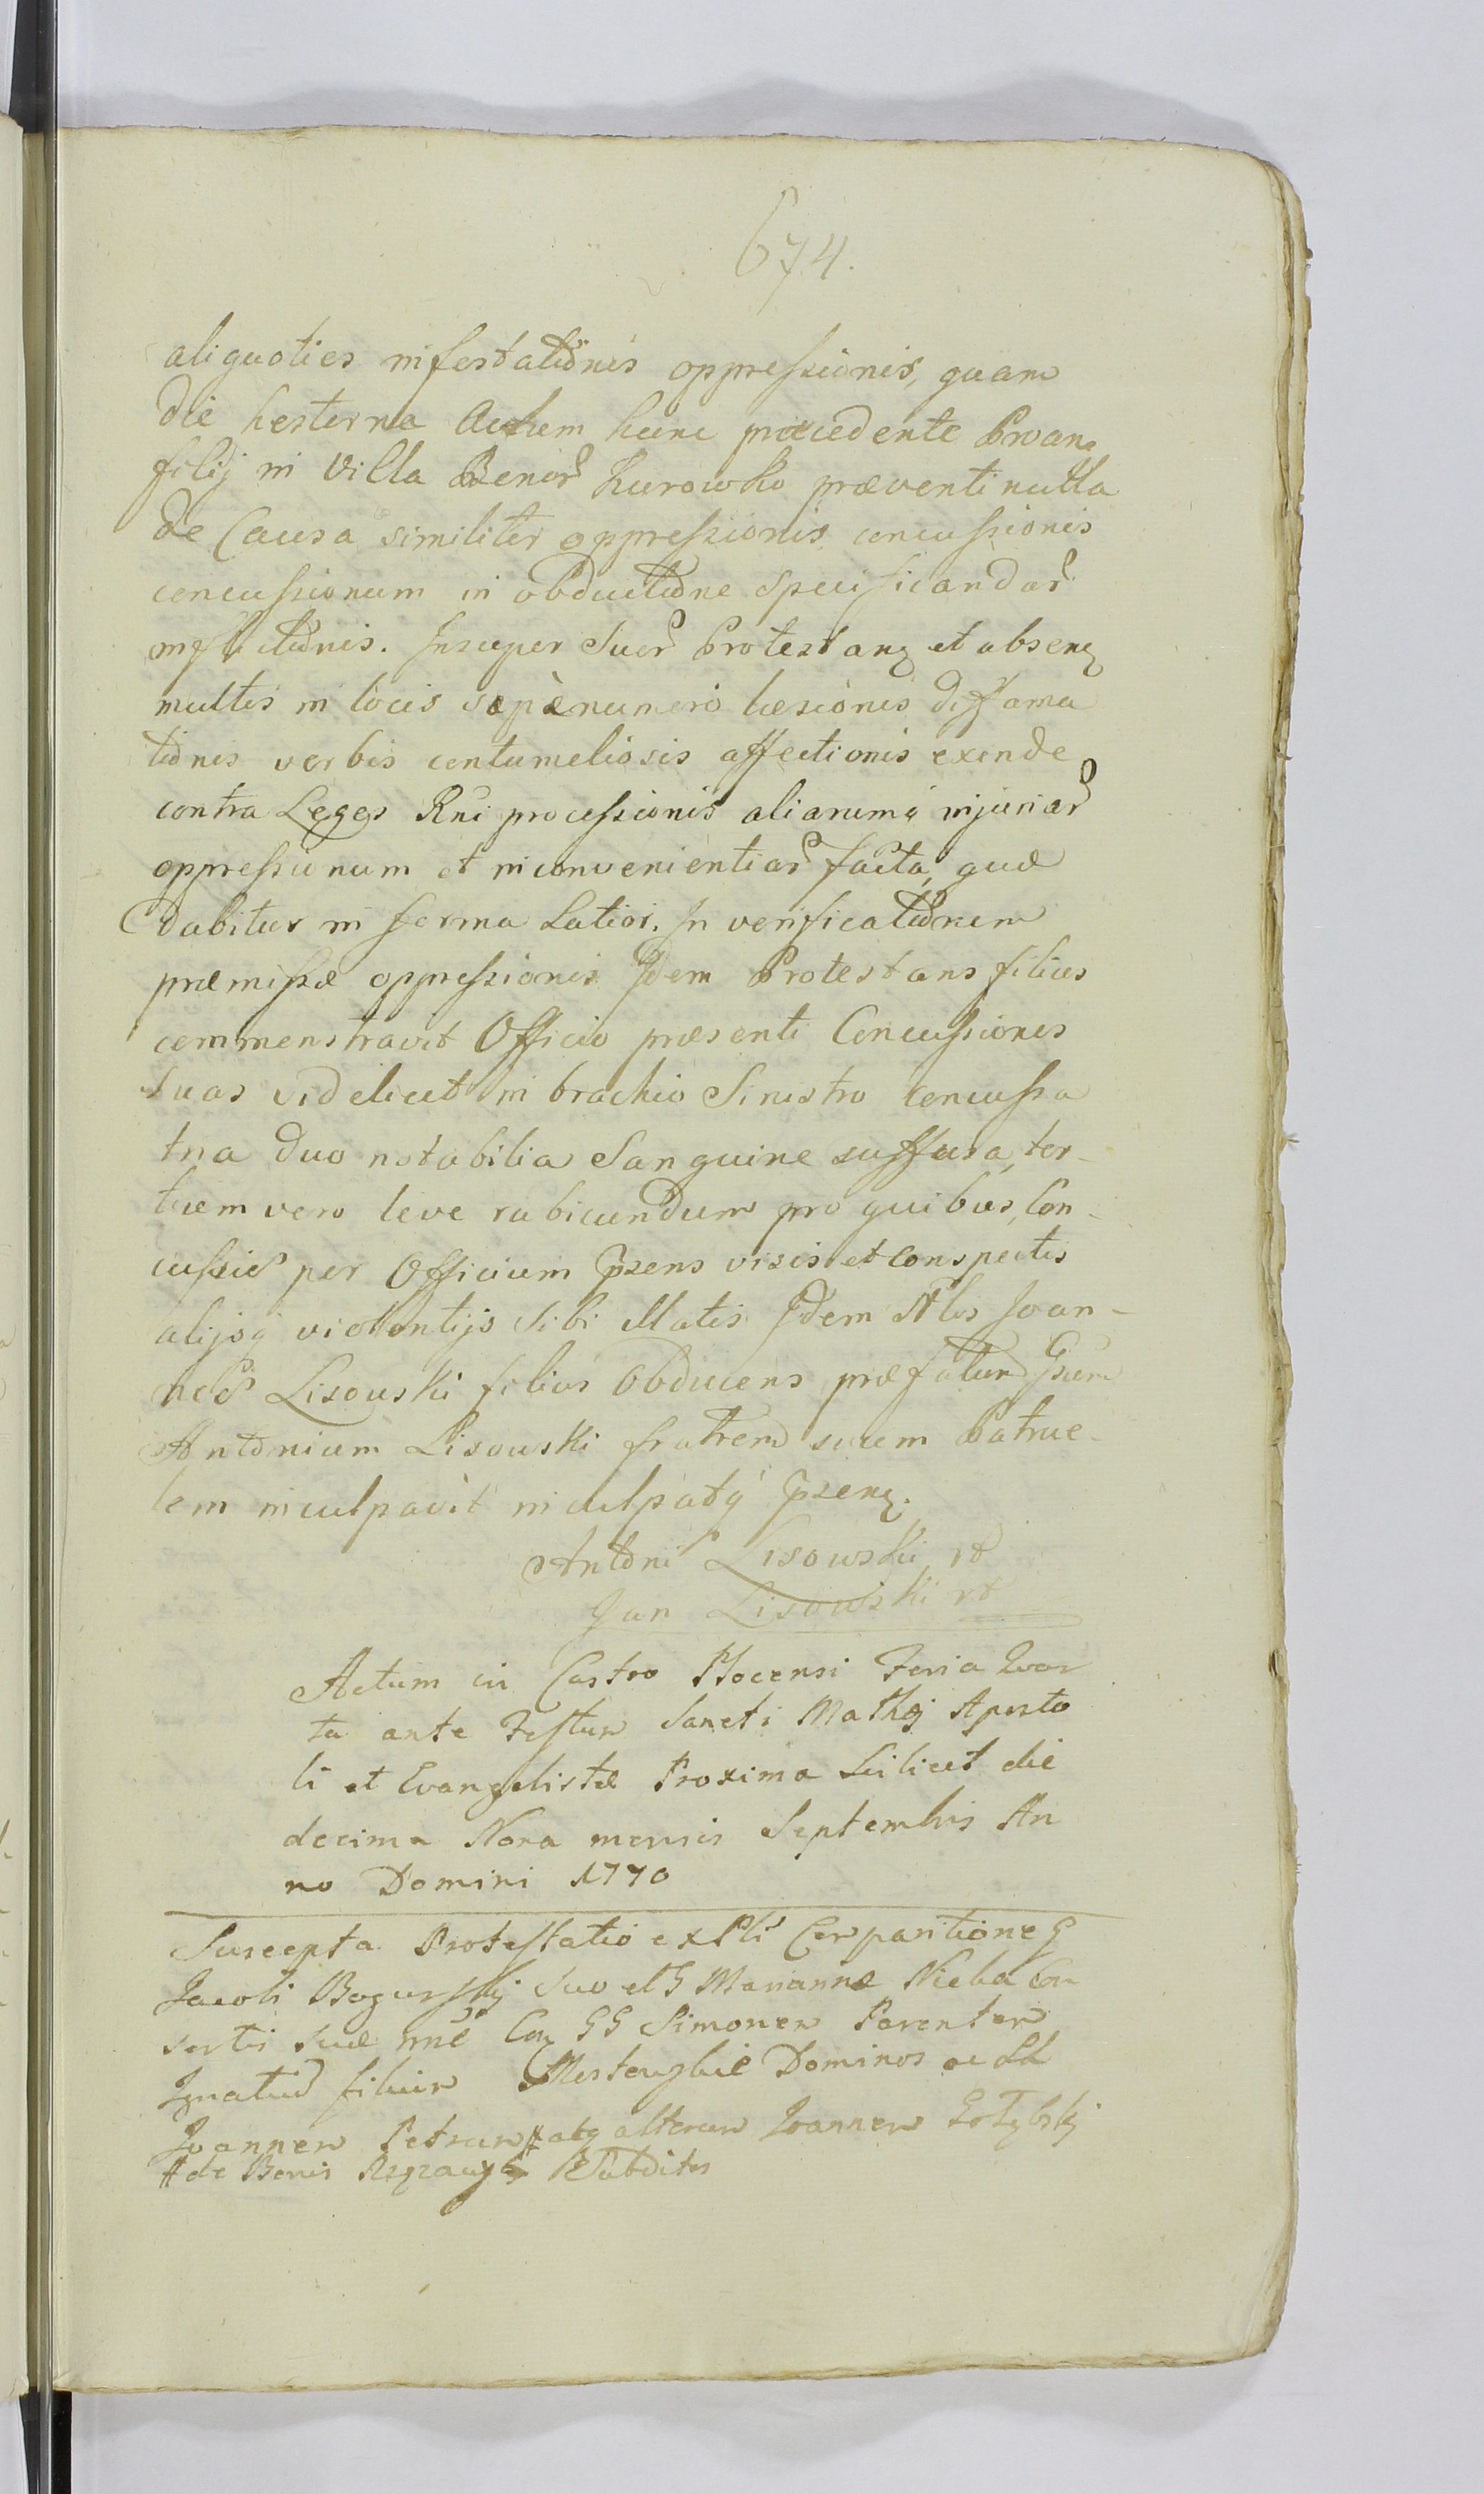 674.
aliquoties infestationis oppressionis, quam
die hesterna Actum hunc præcedente Proan
filij in Villa Bonor Kurowko præventi nulla
de Causa similiter oppressionis concussionis
concussionum in obductione specificandar
inflictionis. Insuper Suor Protestanq et absenq
multis in locis sæpenumero læsionis diffama
tionis verbis contumeliosis affectionis exinde
contra Leges Rni processionis aliarumq injuriar
oppressionum et inconvenientiar facta, quæ
dabitur in forma Latiori. In verificationem
præmissæ oppressionis Idem Protestans filius
commonstravit Officio præsenti Concussiones
suas videlicet in brachio Sinistro concussa
tria duo notabilia Sanguine suffusa, ter-
tium vero leve rubicundum pro quibus, Con-
cussis per Officium Przens visis et conspectis
alijsq violentijs Sibi illatis Idem Nlos Joan-
nes Lisowski filius Obducens præfatum Gsum
Antonium Lisowski fratrem suum Patrue-
lem inculpavit inculpatq Przenq.
Antoni Lisowski
Jan Lisowski
Actum in Castro Plocensi Feria Quar
ta ante Festum Sancti Mathej Aposto
li et Evangelistæ Proxima Scilicet die
decima Nona mensis Septembris An
no Domini 1770
Suscepta Protestatio ex Pli Comparitione G
Jacobi Bogurskij suo et G Mariannæ Con
sortis suæ nne Con GG Simonem Parentem
Ignatium filium Dominos ac LL
Joannem Petrum # atq alterum Joannem
# de Bonis Subditos